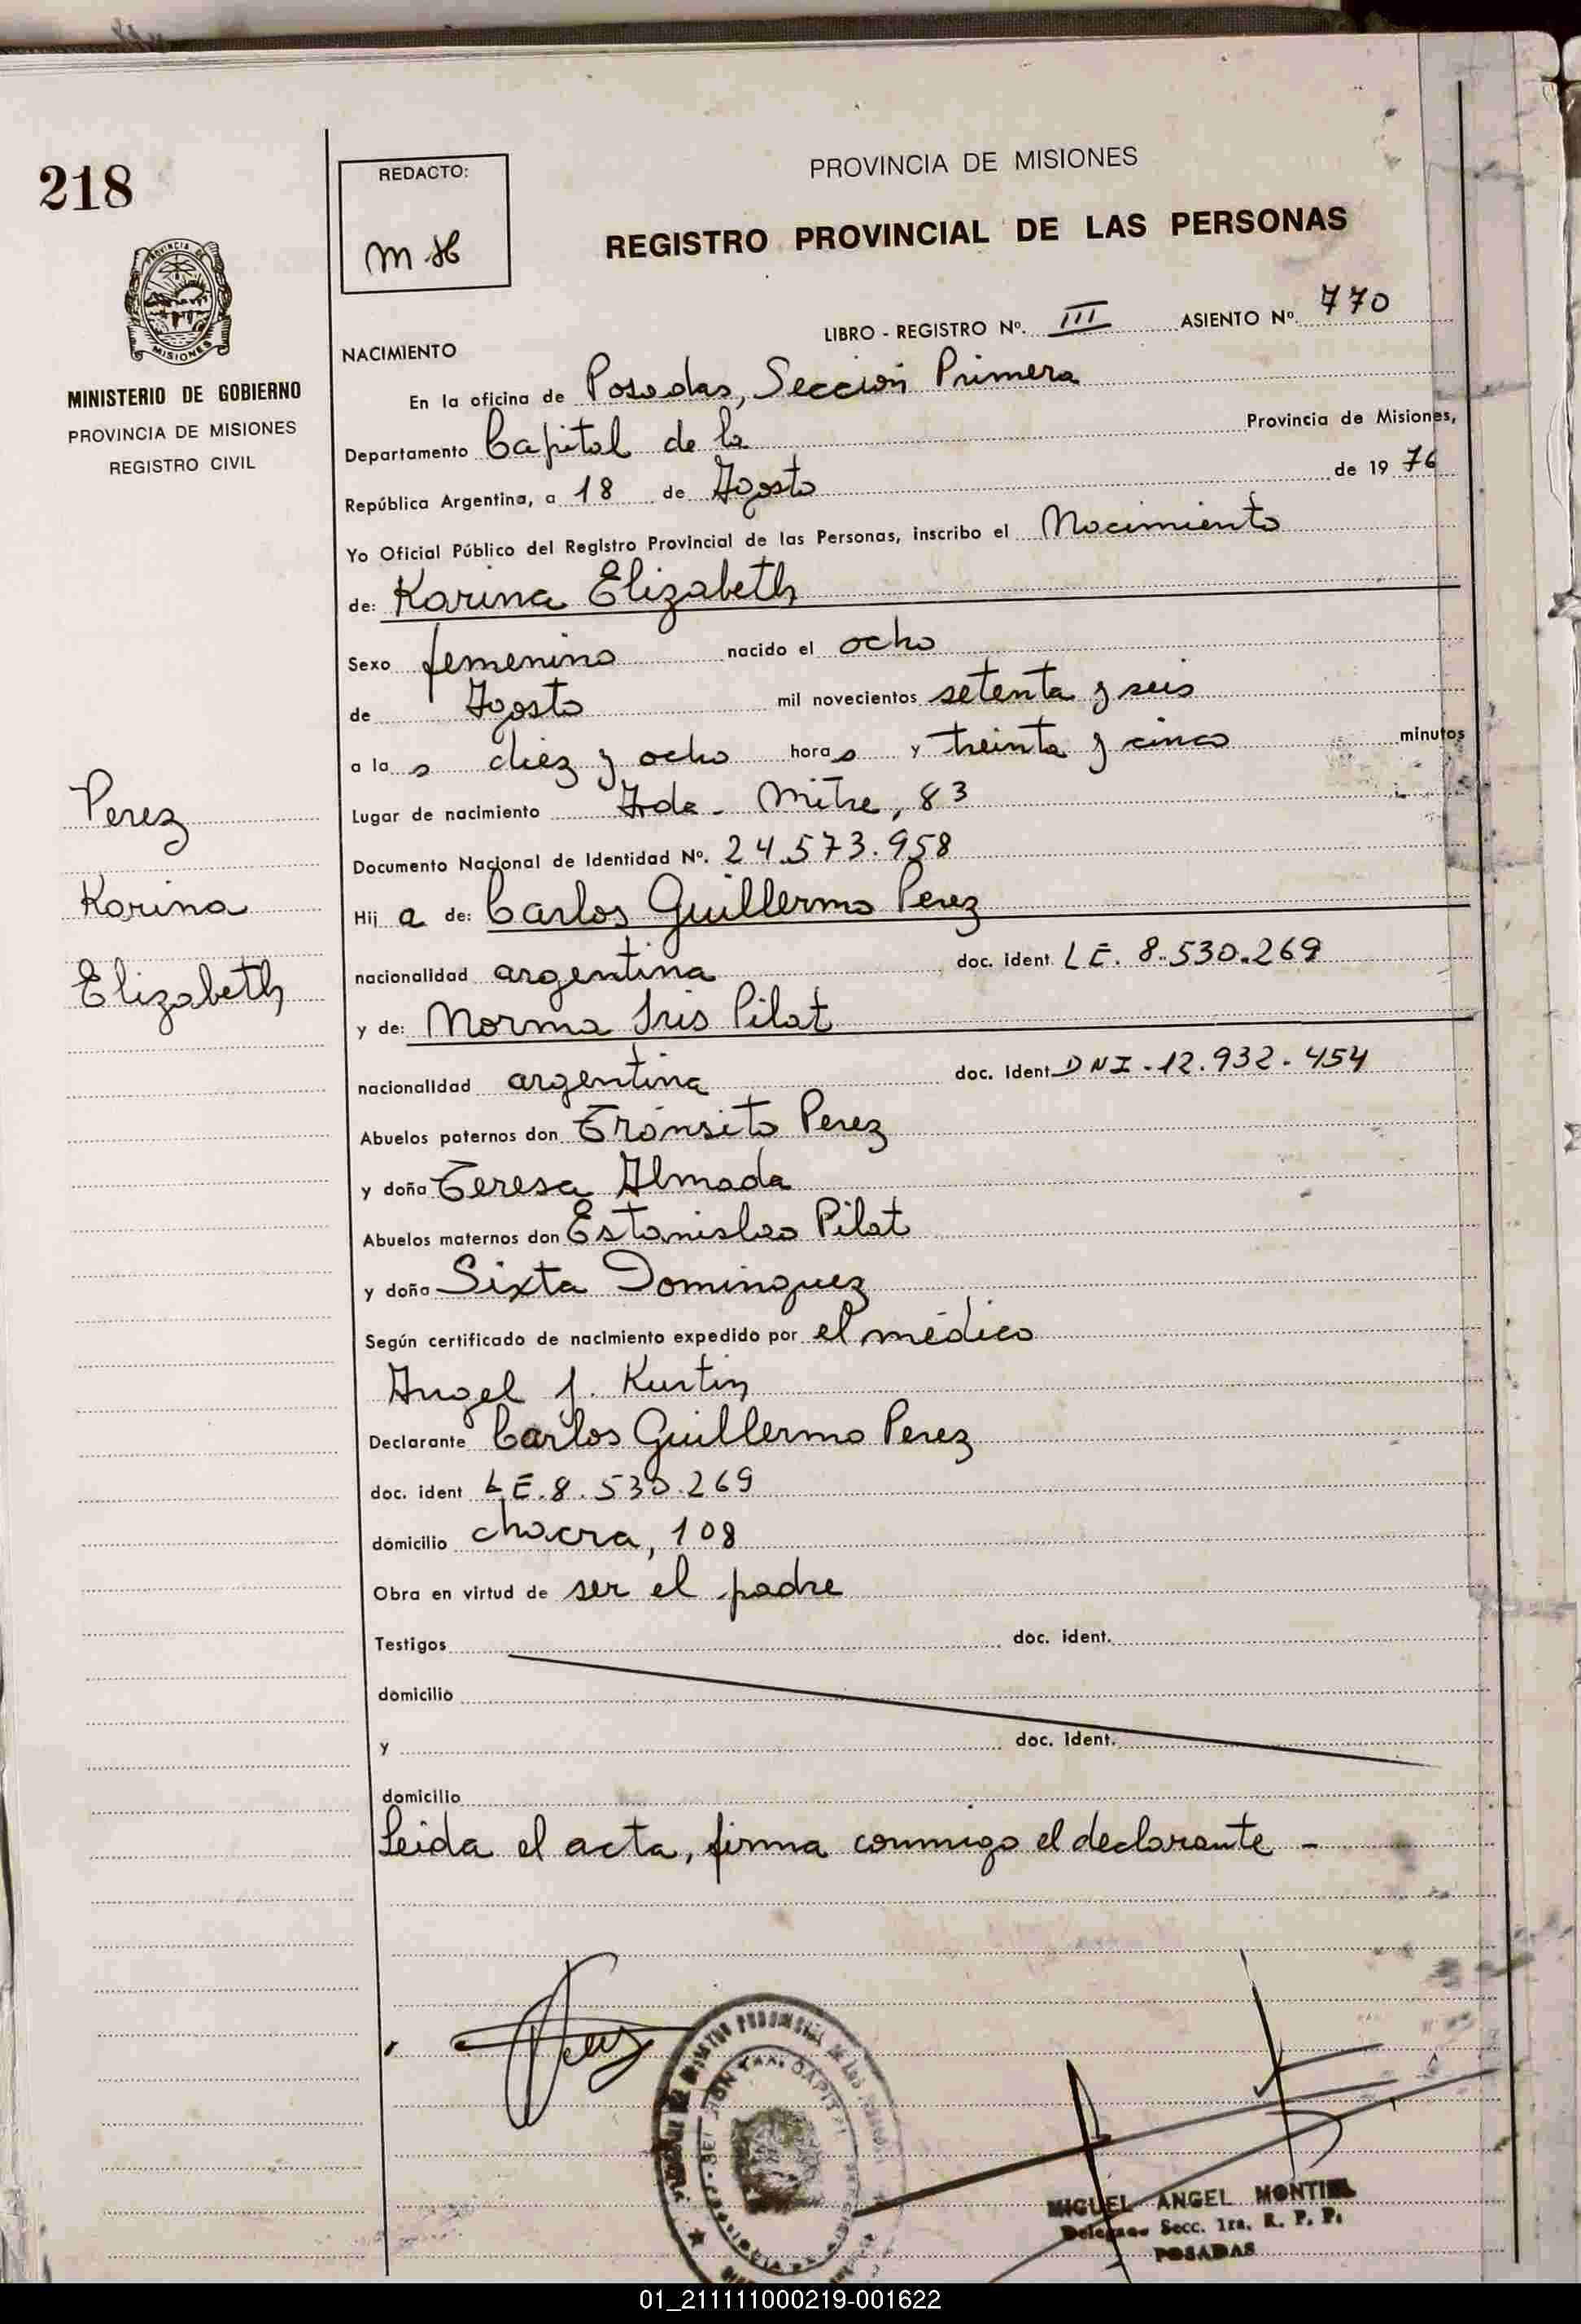 218
PROVINCIA DE
MISIONES
MINISTERIO DE GOBIERNO
PROVINCIA DE MISIONES
REGISTRO CIVIL
Perez
Karina
Elizabeth
REDACTO:
MH
PROVINCIA DE MISIONES
REGISTRO PROVINCIAL DE LAS PERSONAS
LIBRO - REGISTRO Nº. III ASIENTO Nº. 770
NACIMIENTO
En la oficina de Posadas, Sección Primera
Departamento Capital de la Provincia de Misiones,
República Argentina, a 18 de Agosto de 19 76
Yo Oficial Público del Registro Provincial de las Personas, inscribo el Nacimiento
de: Karina Elizabeth
Sexo femenino nacido el ocho
de Agosto mil novecientos setenta y seis
a la s diez y ocho hora s y treinta y cinco minutos
Lugar de nacimiento Avda. Mitre, 83
Documento Nacional de Identidad Nº. 24.573.958
Hij a de: Carlos Guillermo Perez
nacionalidad argentina doc. ident. LE. 8.530.269
y de: Norma Iris Pilat
nacionalidad argentina doc. ident. DNI. 12.932.454
Abuelos paternos don Tránsito Perez
y doña Teresa Almada
Abuelos maternos don Estanislao Pilat
y doña Sixta Dominguez
Según certificado de nacimiento expedido por el médico
Angel J. Kurtin
Declarante Carlos Guillermo Perez
doc. ident LE. 8.530.269
domicilio chacra, 108
Obra en virtud de ser el padre
Testigos doc. ident.
domicilio
y doc. ident.
domicilio
Leida el acta, firma conmigo el declarante -
MIGUEL ANGEL MONTIEL
Delegado Secc. 1ra. R. P. P.
POSADAS
01_211111000219-001622